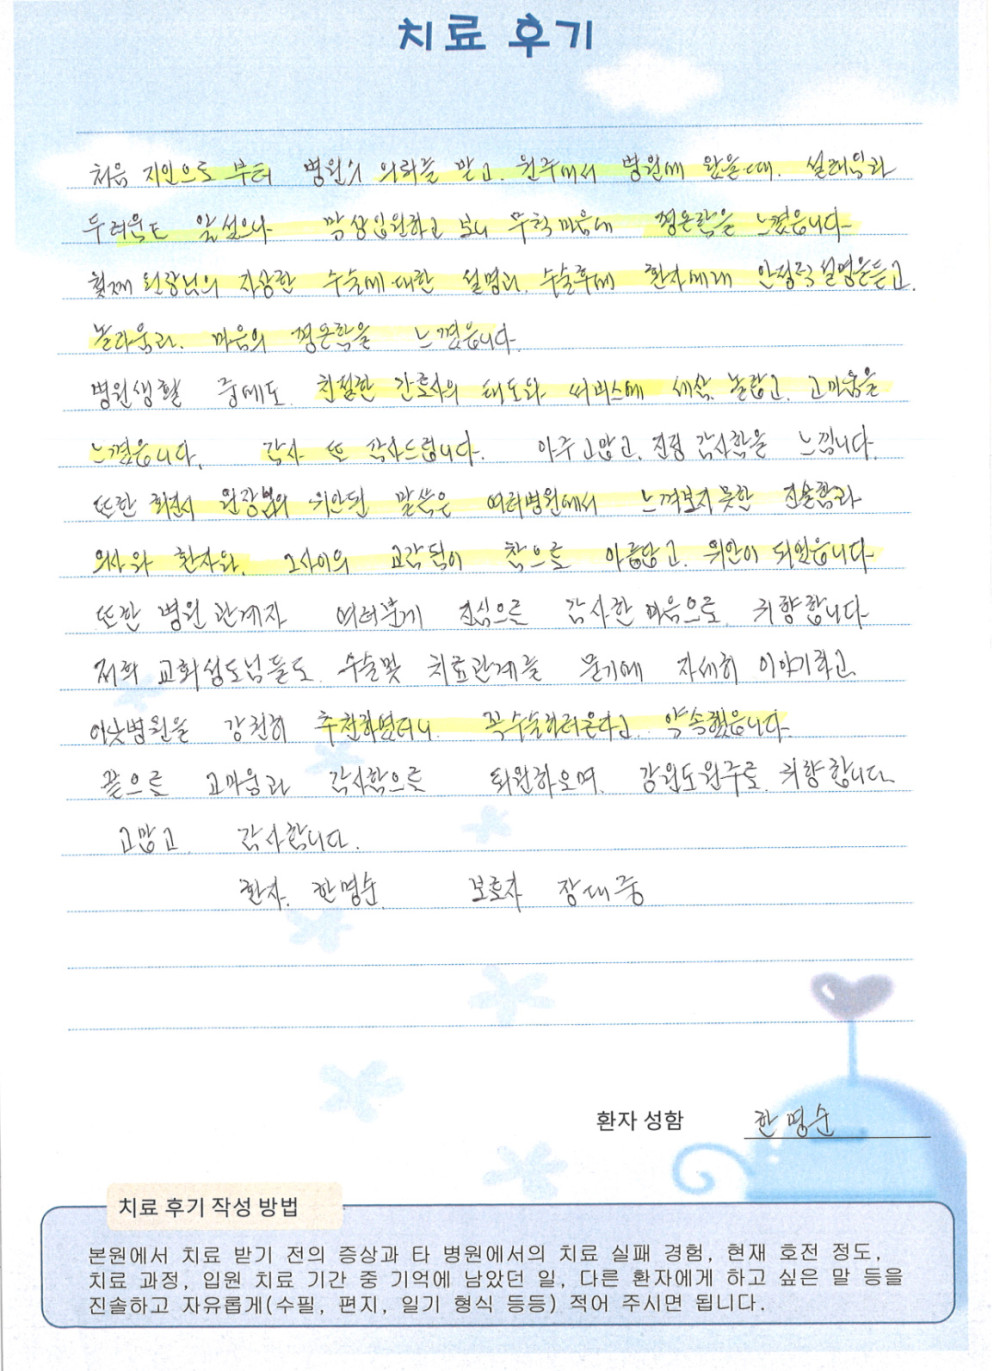 치료 후기
처음 지인으로 부터 병원의 의뢰를 받고. 원주에서 병원에 왔을때. 설레임과
두려움도 앞섰으나 막상입원하고 보니 무척 마음에 평온함을 느꼈읍니다
첫째 원장님의 자상한 수술에 대한 설명과. 수술후에 환자에게 안정적 설명을듣고.
놀라움과. 마음의 평온함을 느꼈읍니다.
병원생활 중에도. 친절한 간호사의 태도와 써비스에 새삼. 놀랍고. 고마움을
느꼈읍니다. 감사 또 감사드립니다. 아주 고맙고. 진정 감사함을 느낍니다.
또한 회진시 원장님의 위안된 말씀은 여러병원에서 느껴보지 못한 진솔함과
의사와 환자와. 그사이의 교감됨이 참으로 아름답고. 위안이 되었읍니다
또한 병원 관계자 여러분께 진심으로 감사한 마음으로. 귀향합니다
저희 교회성도님들도. 수술및 치료관계를 묻기에 자세히 이야기하고.
병원을 강천히 추천하였더니. 꼭수술하러온다고. 약속했읍니다.
끝으로 고마움과 감사함으로 퇴원하오며. 강원도원주로. 귀향합니다.
고맙고. 감사합니다.
환자. 한명순. 보호자 장대중
환자 성함 한명순
치료 후기 작성 방법
본원에서 치료 받기 전의 증상과 타 병원에서의 치료 실패 경험, 현재 호전 정도,
치료 과정, 입원 치료 기간 중 기억에 남았던 일, 다른 환자에게 하고 싶은 말 등을
진솔하고 자유롭게(수필, 편지, 일기 형식 등등) 적어 주시면 됩니다.